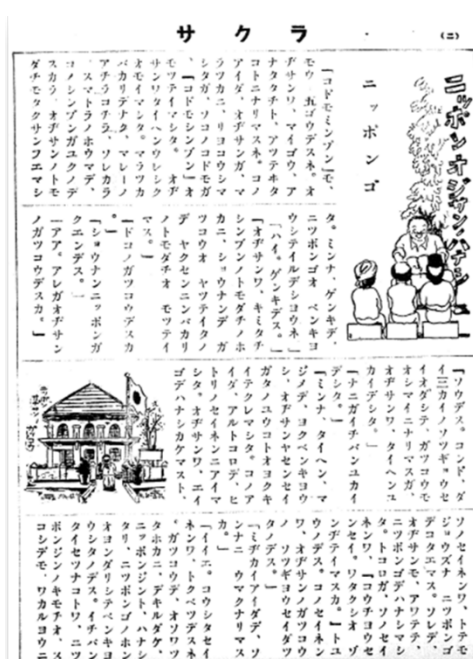 サクラ
(二)
ニッポンオヂサンノハナシ
ニッポンゴ
「コドモシンブン」モ、
モウ 五ゴウデスネ。オ
ヂサンワ、マイゴウ、ア
ナタタチト、アツテ
コトニナリマスネ。コノ
アイダ、オヂサンガ、マ
ラツカニ、リヨコウシマ
シタガ、ソコノコドモガ
、「コドモシンブン」オ
モツテイマシタ。オヂ
サンワタイヘンウレシク
オモイマシタ。マラツカ
バカリデナク、マレーノ
アチラコチラ、ソレカラ
、スマトラノホウマデ、
コノシンブンガユクノデ
スカラ、オヂサンノトモ
ダチモタクサンフエマシ
タ。ミンナ、ゲンキデ、
ニツポンゴオ ベンキヨ
ウシテイルデシヨウネ」
「ハイ。ゲンキデス。」
「オヂサンワ、キミタチ
シンブンノトモダチノホ
カニ、ショウナンデ ガ
ツコウオ ヤツテイタノ
デ ヤクセンニンバカリ
ノトモダチオ モツテイ
マス。」
「ドコノガツコウデスカ
。」
「ショウナンニッポンガ
クエンデス。」
「アア。アレガオヂサン
ノガツコウデスカ。」
「ソウデス。コンド、ダ
イ三カイノソツギョウセ
イオダシテ、ガツコウモ
オシマイニナリマスガ、
オヂサンワ、タイヘンユ
カイデシタ。」
「ナニガイチバンユカイ
デシタ。」
「ミンナ、タイヘン、マ
ジメデ、ヨクベンキヨウ
シ、オヂサンヤセンセイ
ガタノユウコトオヨクキ
イテクレマシタ。コノア
イダ、アルトコロデ、ヒ
トリノセイネンニアイマ
シタ。オヂサンワ、エイ
ゴデハナシカケマスト、
ソノセイネンワ、トテモ
ジヨウズナ ニツポンゴ
デコタエマス。ソレデ、
オヂサンモ、アワテテ、
ニツポンゴデハナシマシ
タ。トコロガ、ソノセイ
ネンワ、「コウチヨウセ
ンセイ、ワタクシオ ゾ
ンヂテイマスカ。」トユ
ウノデス。コノセイネン
ワ、オヂサンノガツコウ
ノ ソツギヨウセイダツ
タノデス。」
「ミヂカイアイダデ、ソ
ンナニ ウマクナリマス
カ。」
「イイエ。コウシタセイ
ネンワ、トクベツデスネ
。ガツコウデ、オソワツ
タホカニ、デキルダケ、
ニッポンジント、ハナシ
タリ、ニツポンゴノホン
オヨンダリシテベンキヨ
ウシタノデス。イチバン
タイセツナコトワ、ニツ
ポンジンノキモチオ、ス
コシデモ、ワカルヨウニ